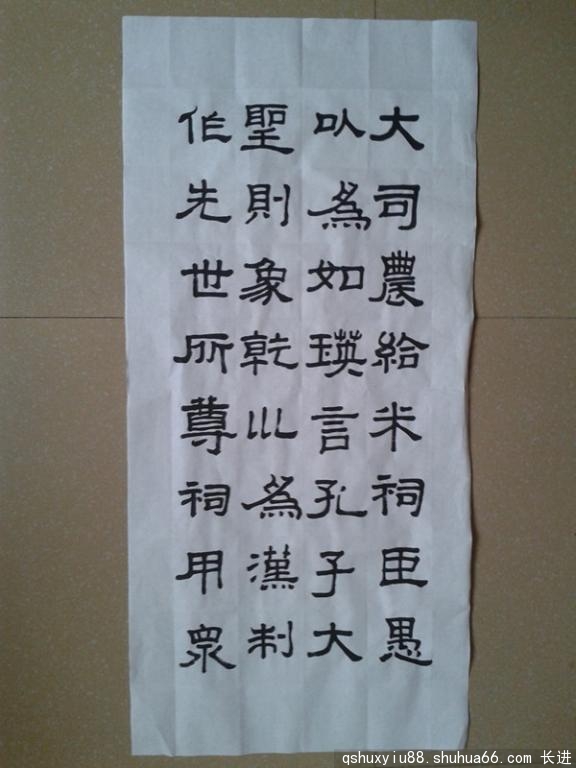 大司農給米祠臣愚
以為如瑛言孔子大
聖則象乾坤為漢制
作先世所尊祠用眾
qshuxyiu88.shuhua66.com 长进